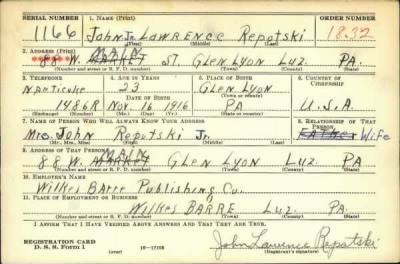 SERIAL NUMBER 1. NAME (Print) ORDER NUMBER
1166 John Jr. LAWRENCE Repotski 1832
(First) (Middle) (Last)
2. ADDRESS (Print)
MAIN
88 W. MARKET ST. GLEN LYON LUZ. PA.
(Number and street or R. F. D. number) (Town) (County) (State)
3. TELEPHONE 4. AGE IN YEARS 5. PLACE OF BIRTH 6. COUNTRY OF CITIZENSHIP
Nanticoke 23 GLEN LYON
DATE OF BIRTH (Town or county)
1486R Nov. 16 1916 PA U.S.A.
(Exchange) (Number) (Mo.) (Day) (Yr.) (State or country)
7. NAME OF PERSON WHO WILL ALWAYS KNOW YOUR ADDRESS 8. RELATIONSHIP OF THAT PERSON
Mrs. John Repotski Jr. FATHER Wife
(Mr., Mrs., Miss) (First) (Middle) (Last)
9. ADDRESS OF THAT PERSON
MAIN
88 W. MARKET GLEN LYON LUZ. PA
(Number and street or R. F. D. number) (Town) (County) (State)
10. EMPLOYER'S NAME
Wilkes Barre Publishing Co.
11. PLACE OF EMPLOYMENT OR BUSINESS
Wilkes BARRE LUZ. PA.
(Number and street or R. F. D. number) (Town) (County) (State)
I AFFIRM THAT I HAVE VERIFIED ABOVE ANSWERS AND THAT THEY ARE TRUE.
REGISTRATION CARD
D. S. S. Form 1 (over) 16—17105
John Lawrence Repotski
(Registrant's signature)